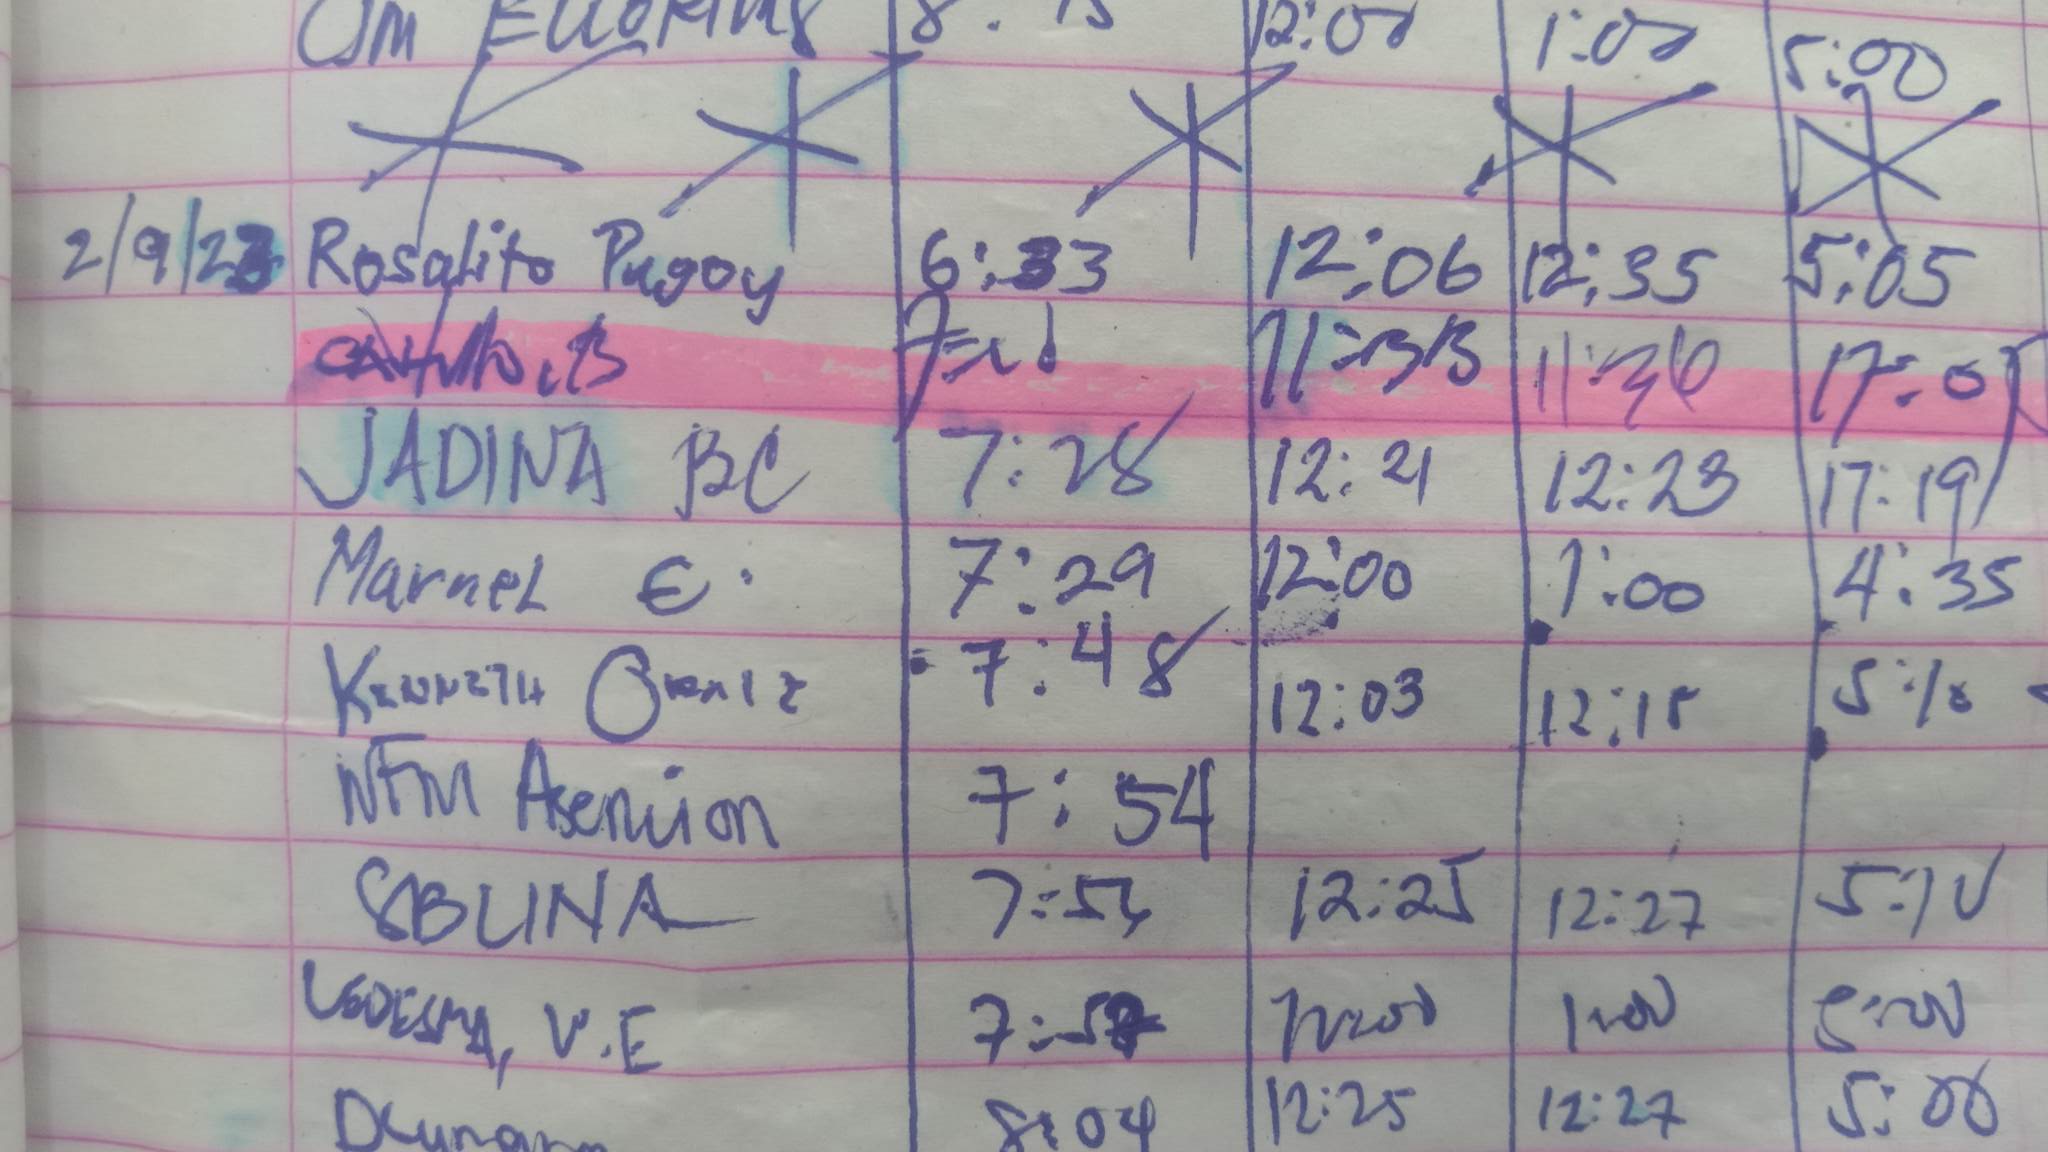 8:15 12:00 1:00 5:00
2/9/23 Rosalito Pugoy 6:33 12:06 12:35 5:05
11:33 11:36 17:0
JADINA BC 7:28 12:21 12:23 17:19
Marnel E. 7:29 12:00 1:00 4:35
KENNETH 7:48 12:03 12:15 5:10
NFM Asencion 7:54
SBLINA 7:54 12:25 12:27 5:10
LEDESMA, V.E 7:57 12:00 1:00 5:00
8:04 12:25 12:27 5:00